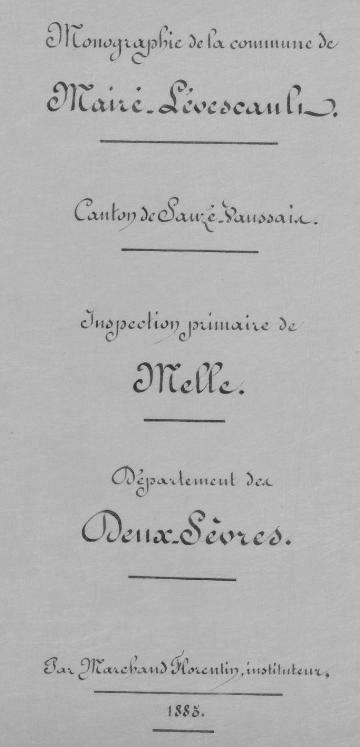 Monographie de la commune de
Mairé-Lévescault.
Canton de Sauzé-Vaussais.
Inspection primaire de
Melle.
Département des
Deux-Sèvres.
Par Marchand Florentin, instituteur.
1885.